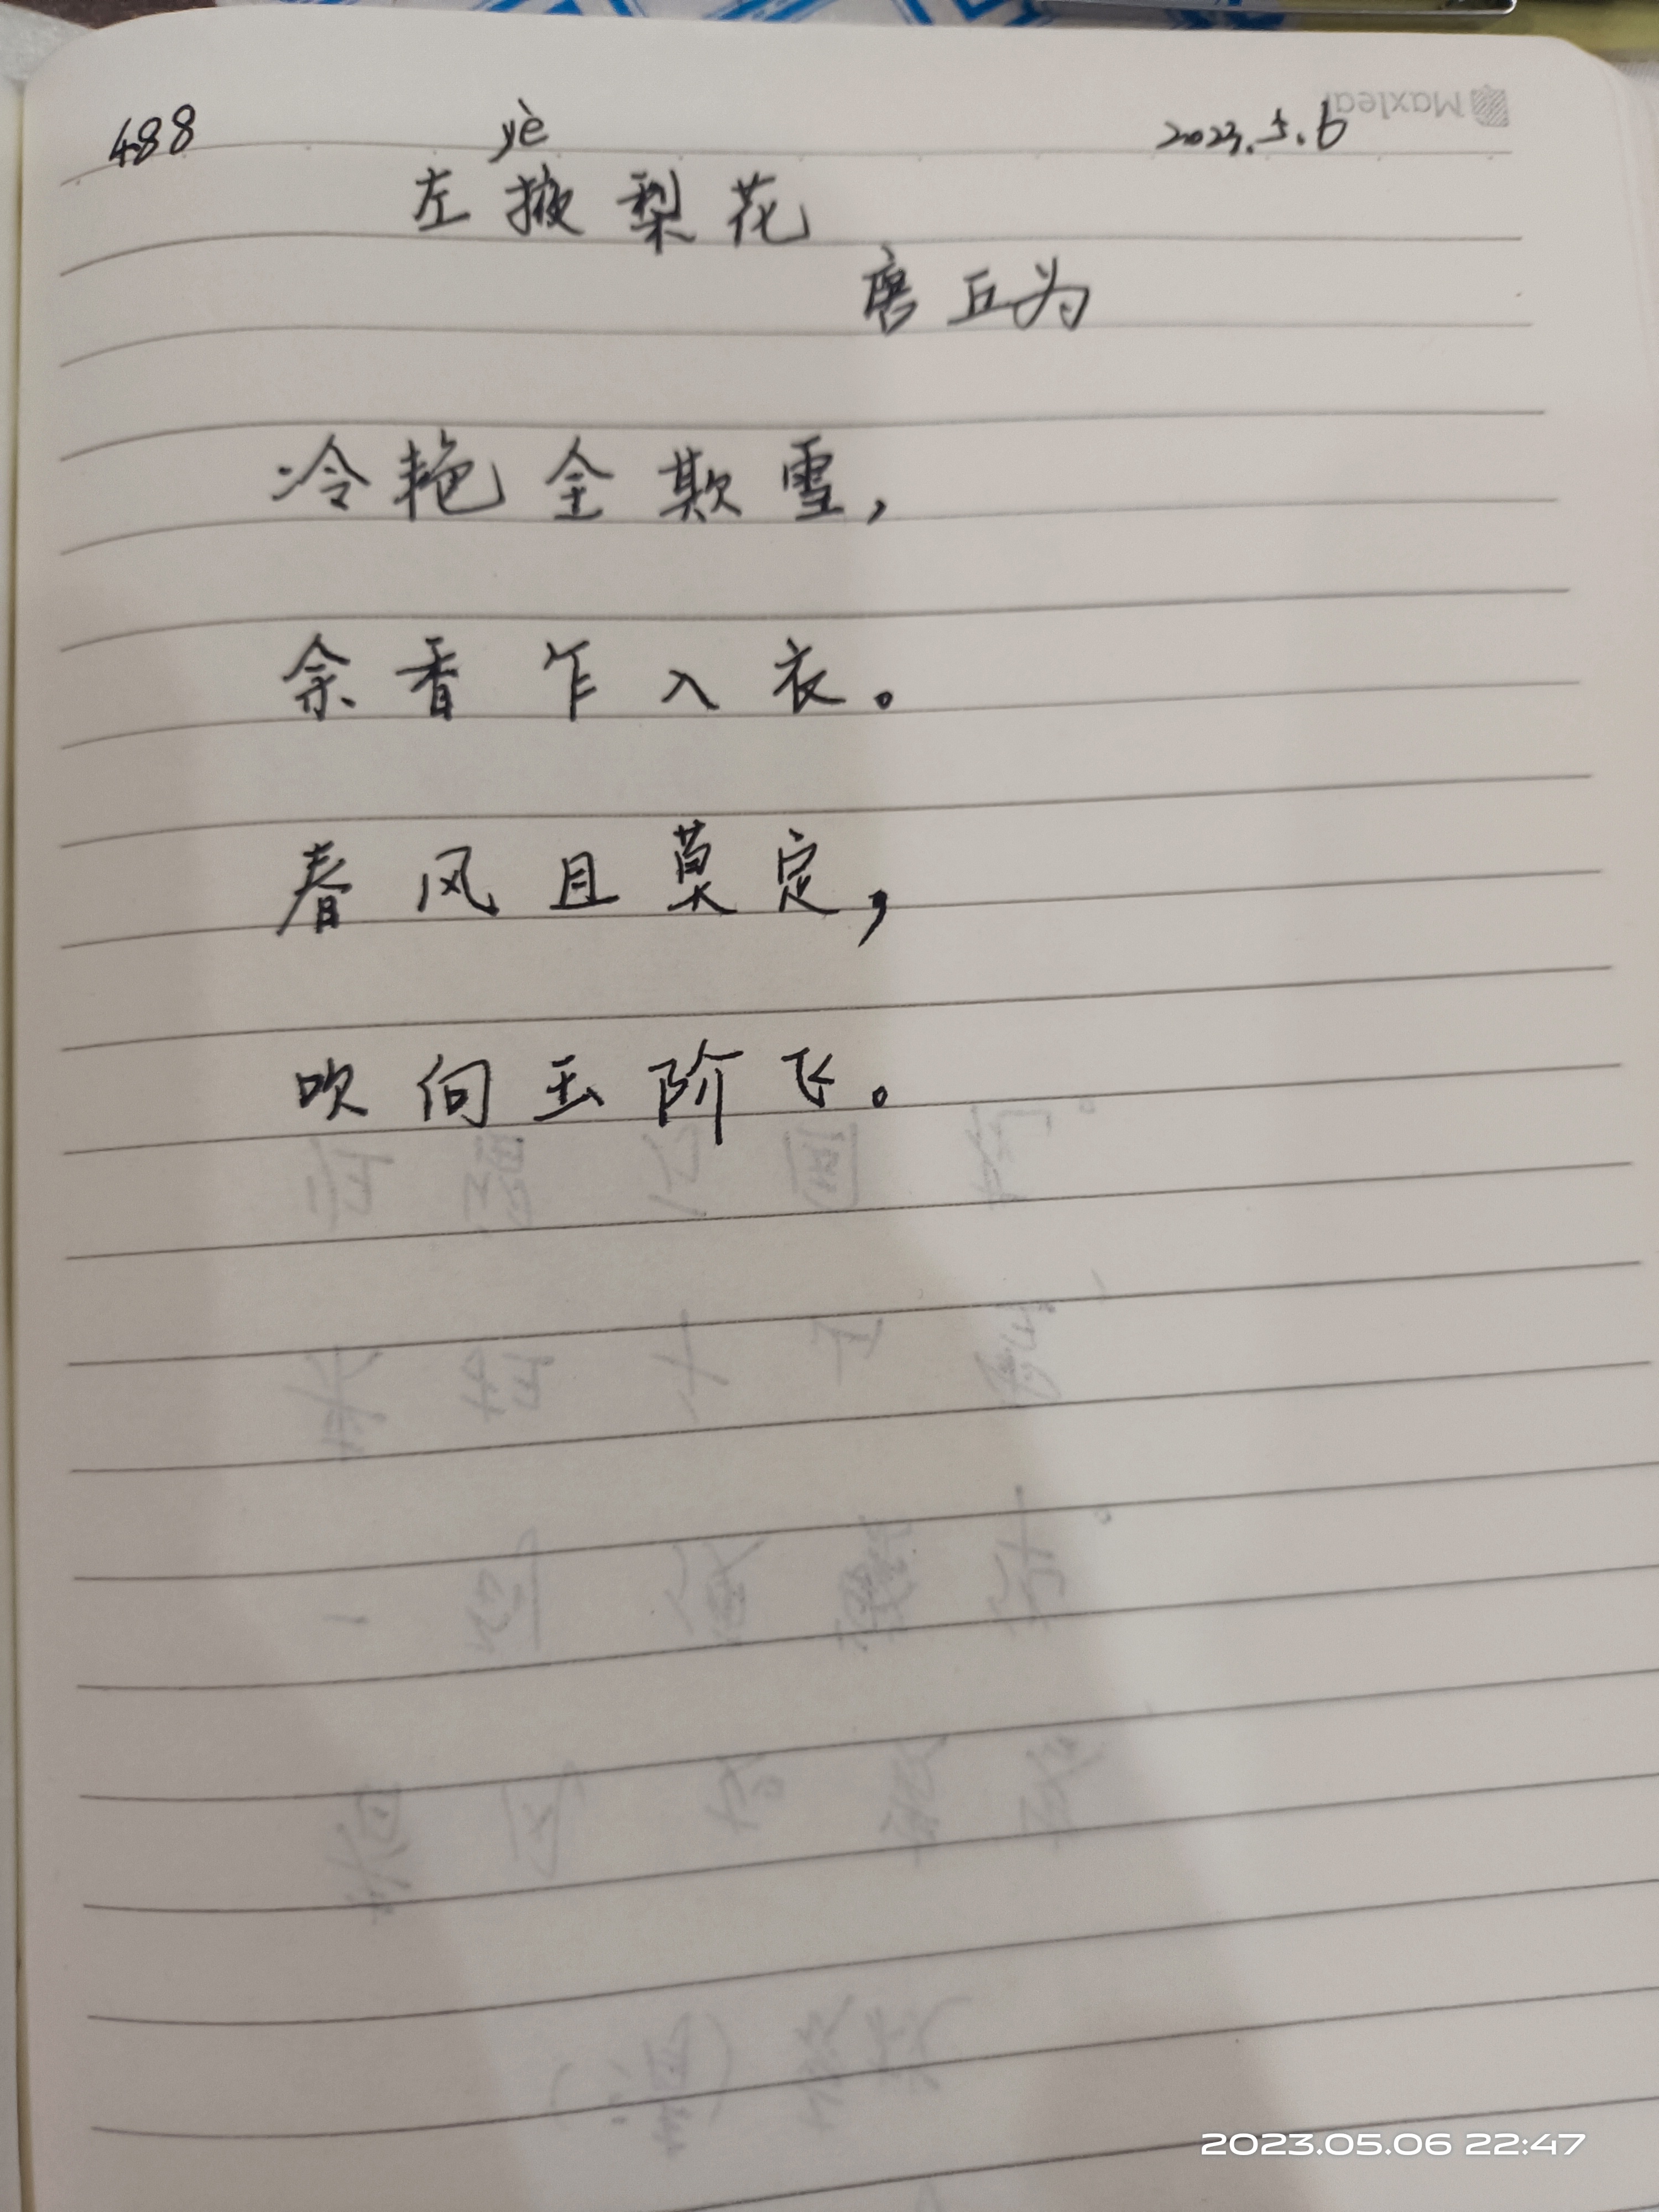 488 yè 2023.5.6
Maxleaf
左掖梨花
唐 丘为
冷艳全欺雪，
余香乍入衣。
春风且莫定，
吹向玉阶飞。
2023.05.06 22:47